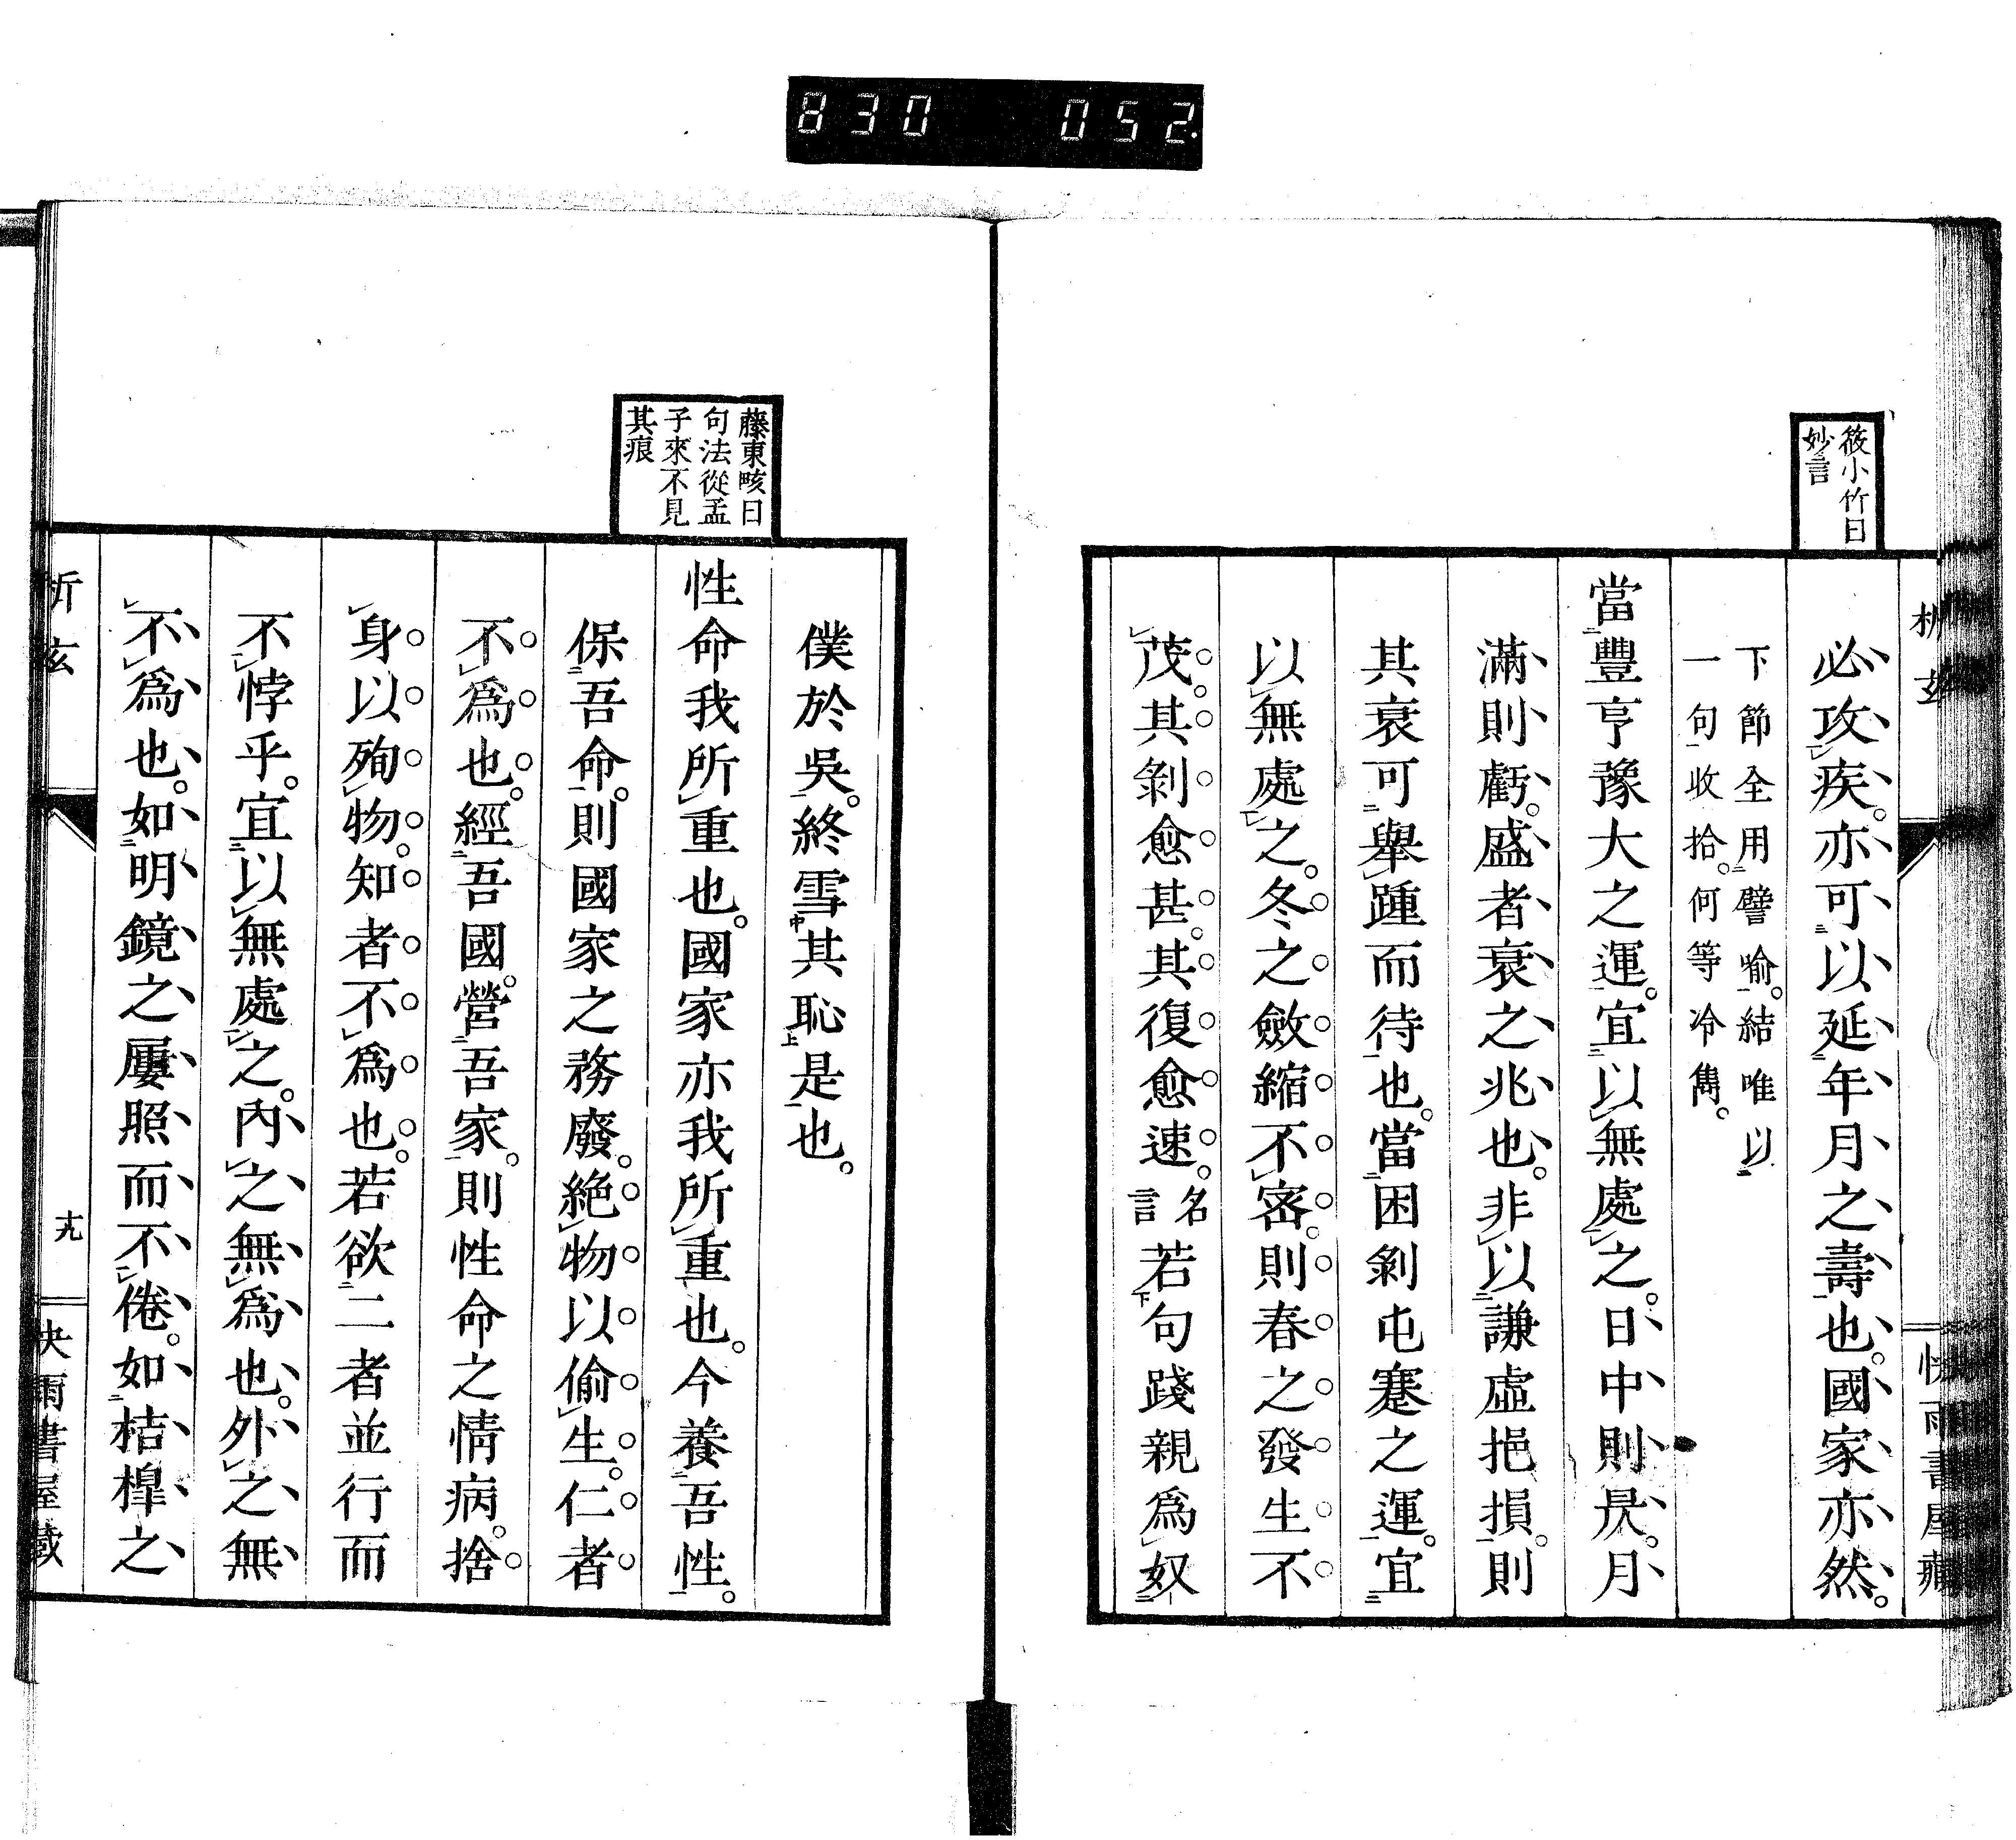 830 052
筱小竹曰
妙言
析玄
快雨書屋藏
必攻疾。亦可以延年月之壽也。國家亦然。
下節全用譬喻。結唯以
一句收拾。何等冷雋。
當豐亨豫大之運。宜以無處之。日中則昃。月
滿則虧。盛者衰之兆也。非以謙虛挹損。則
其衰可舉踵而待也。當困剝屯蹇之運。宜
以無處之。冬之斂縮不密。則春之發生不
茂。其剝愈甚。其復愈速。名言若句踐親爲奴
藤東畡曰
句法從孟
子來不見
其痕
僕於吳。終雪其恥是也。
性命我所重也。國家亦我所重也。今養吾性。
保吾命。則國家之務廢。絶物以偷生。仁者
不爲也。經吾國。營吾家。則性命之情病。捨
身以殉物。知者不爲也。若欲二者並行而
不悖乎。宜以無處之。內之無爲也。外之無
不爲也。如明鏡之屢照而不倦。如桔槹之
析玄
十九
快雨書屋藏